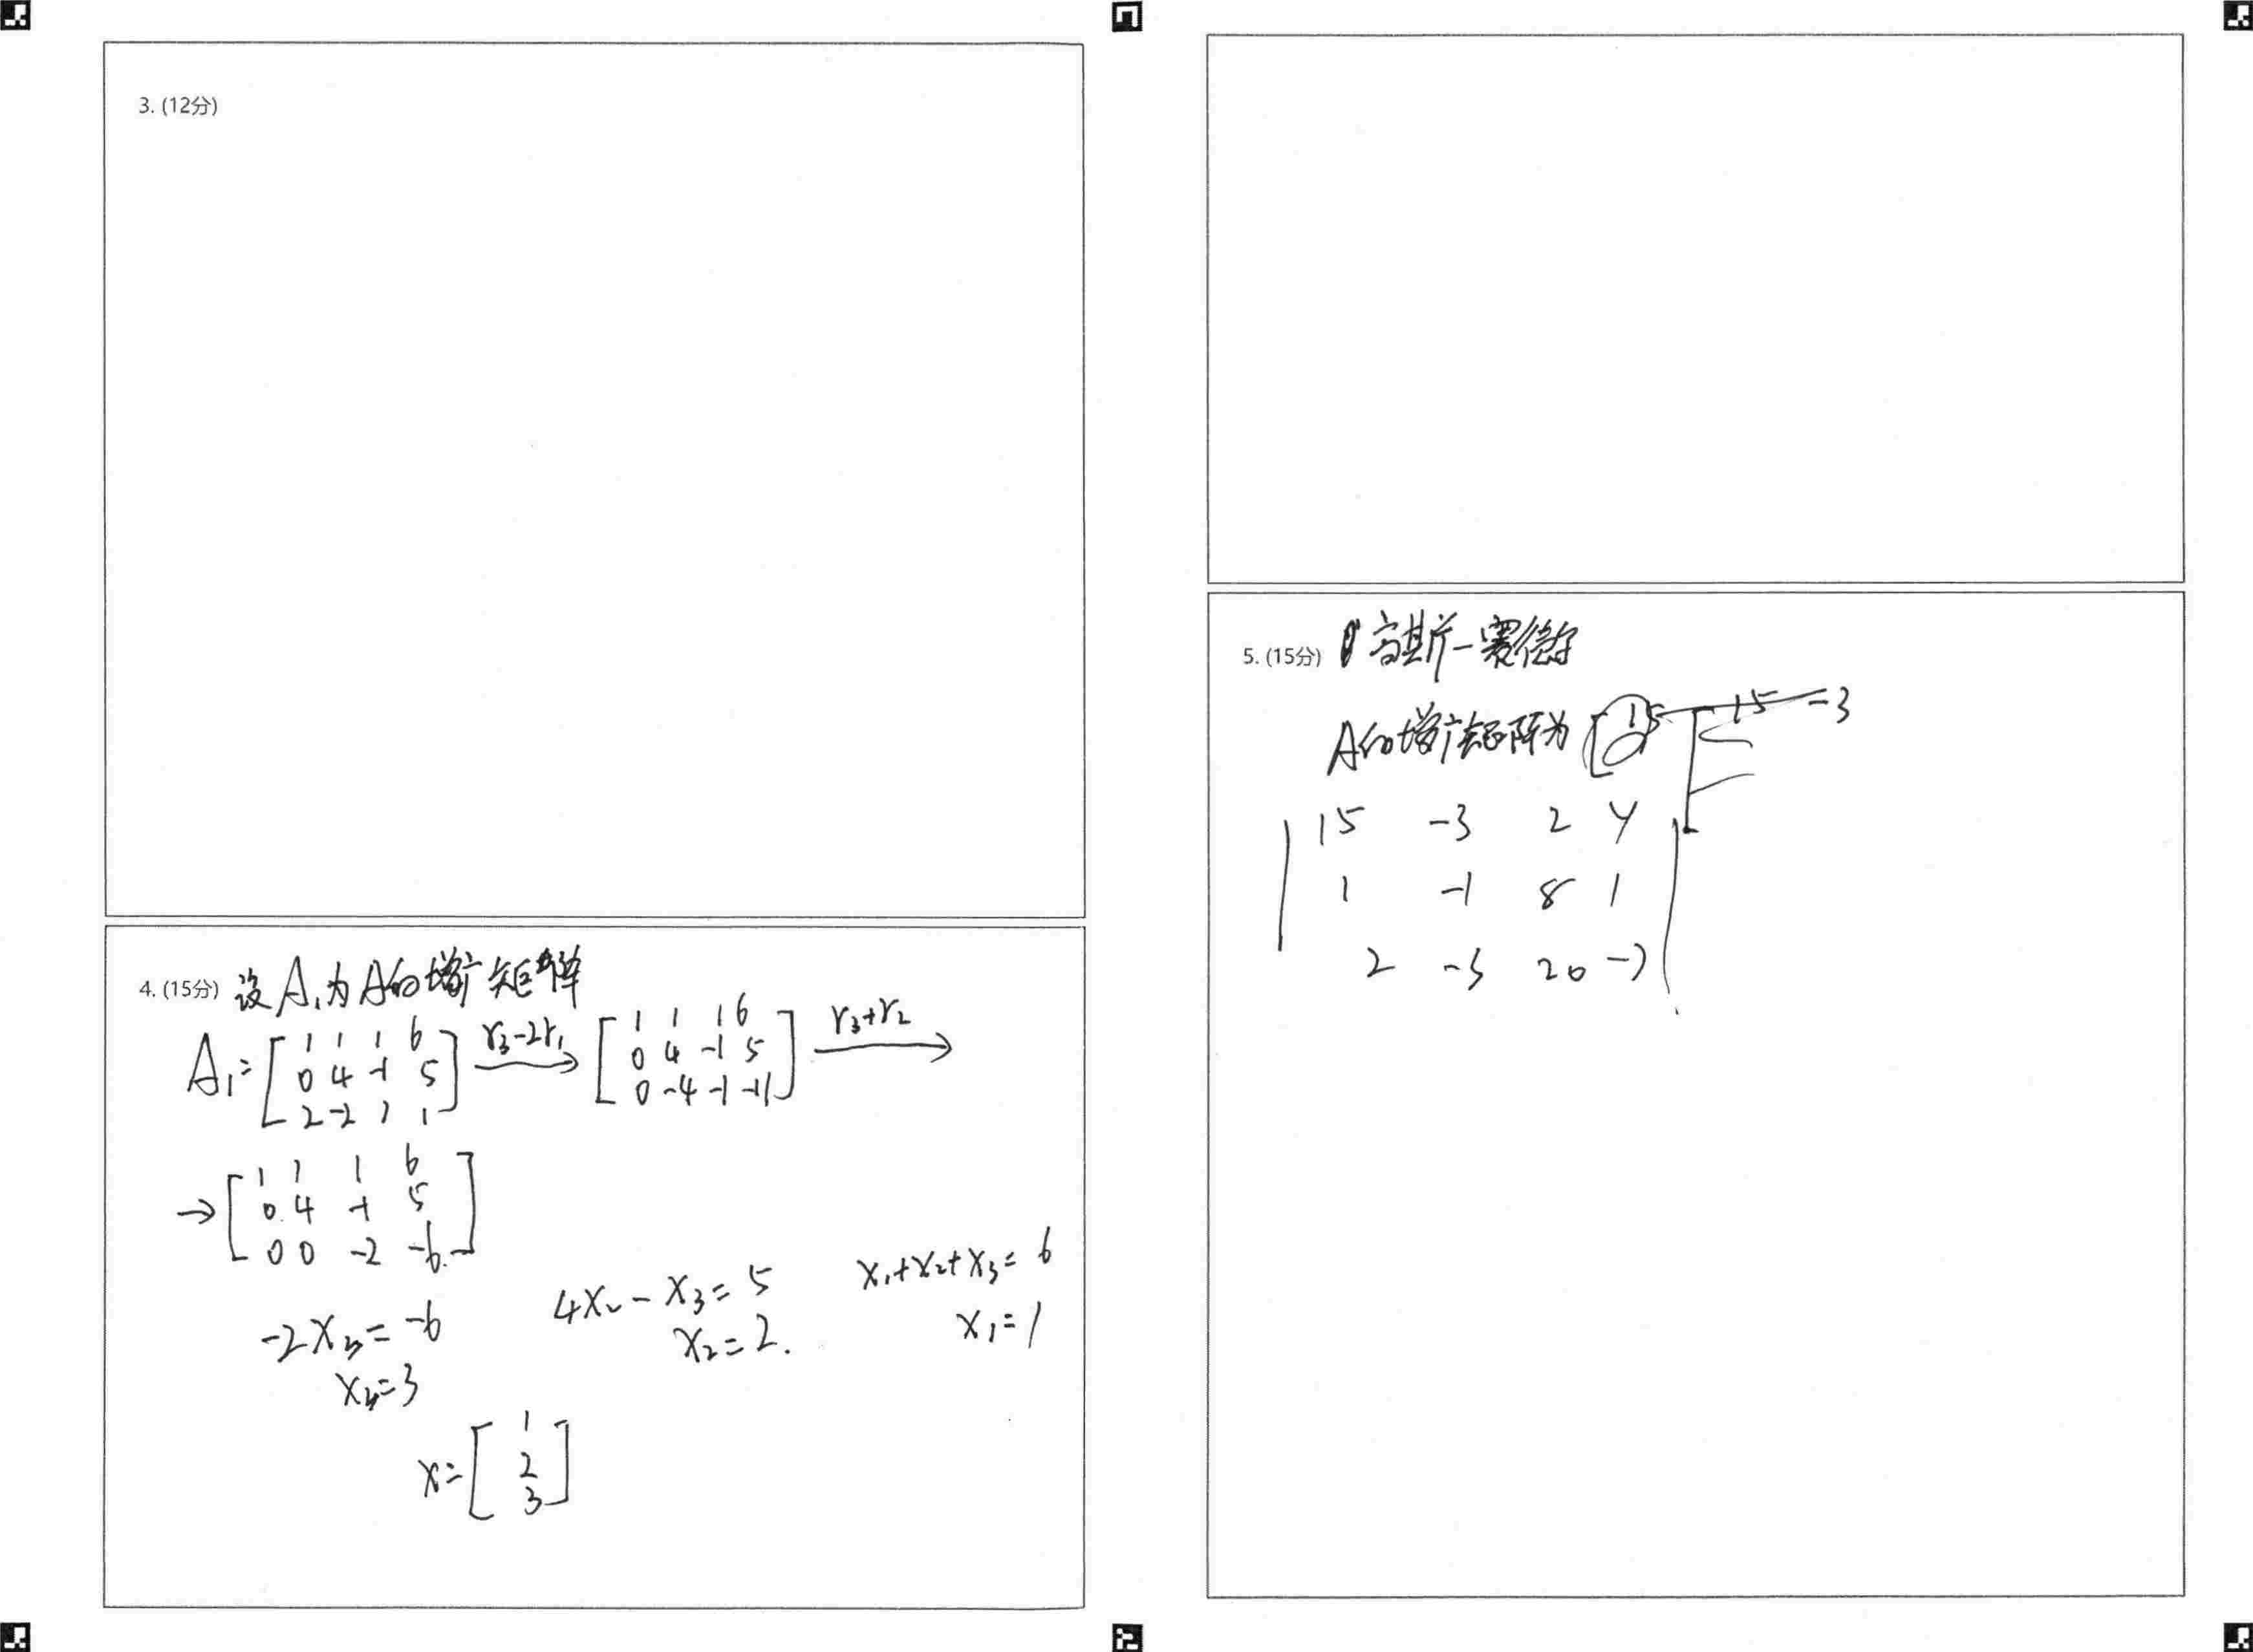 3. (12分)
4. (15分) 设A₁为A的增广矩阵
A₁= [ 1 1 1 6
0 4 -1 5
2 -2 1 1 ] r₃-2r₁ → [ 1 1 1 6
0 4 -1 5
0 -4 -1 -11 ] r₃+r₂ →
→ [ 1 1 1 6
0 4 -1 5
0 0 -2 -6 ]
-2x₃=-6
x₃=3
4x₂-x₃=5
x₂=2.
x₁+x₂+x₃=6
x₁=1
x= [ 1
2
3 ]
5. (15分) 高斯-赛德尔
A的增广矩阵为
15 -3 2 4
1 -1 8 1
2 20